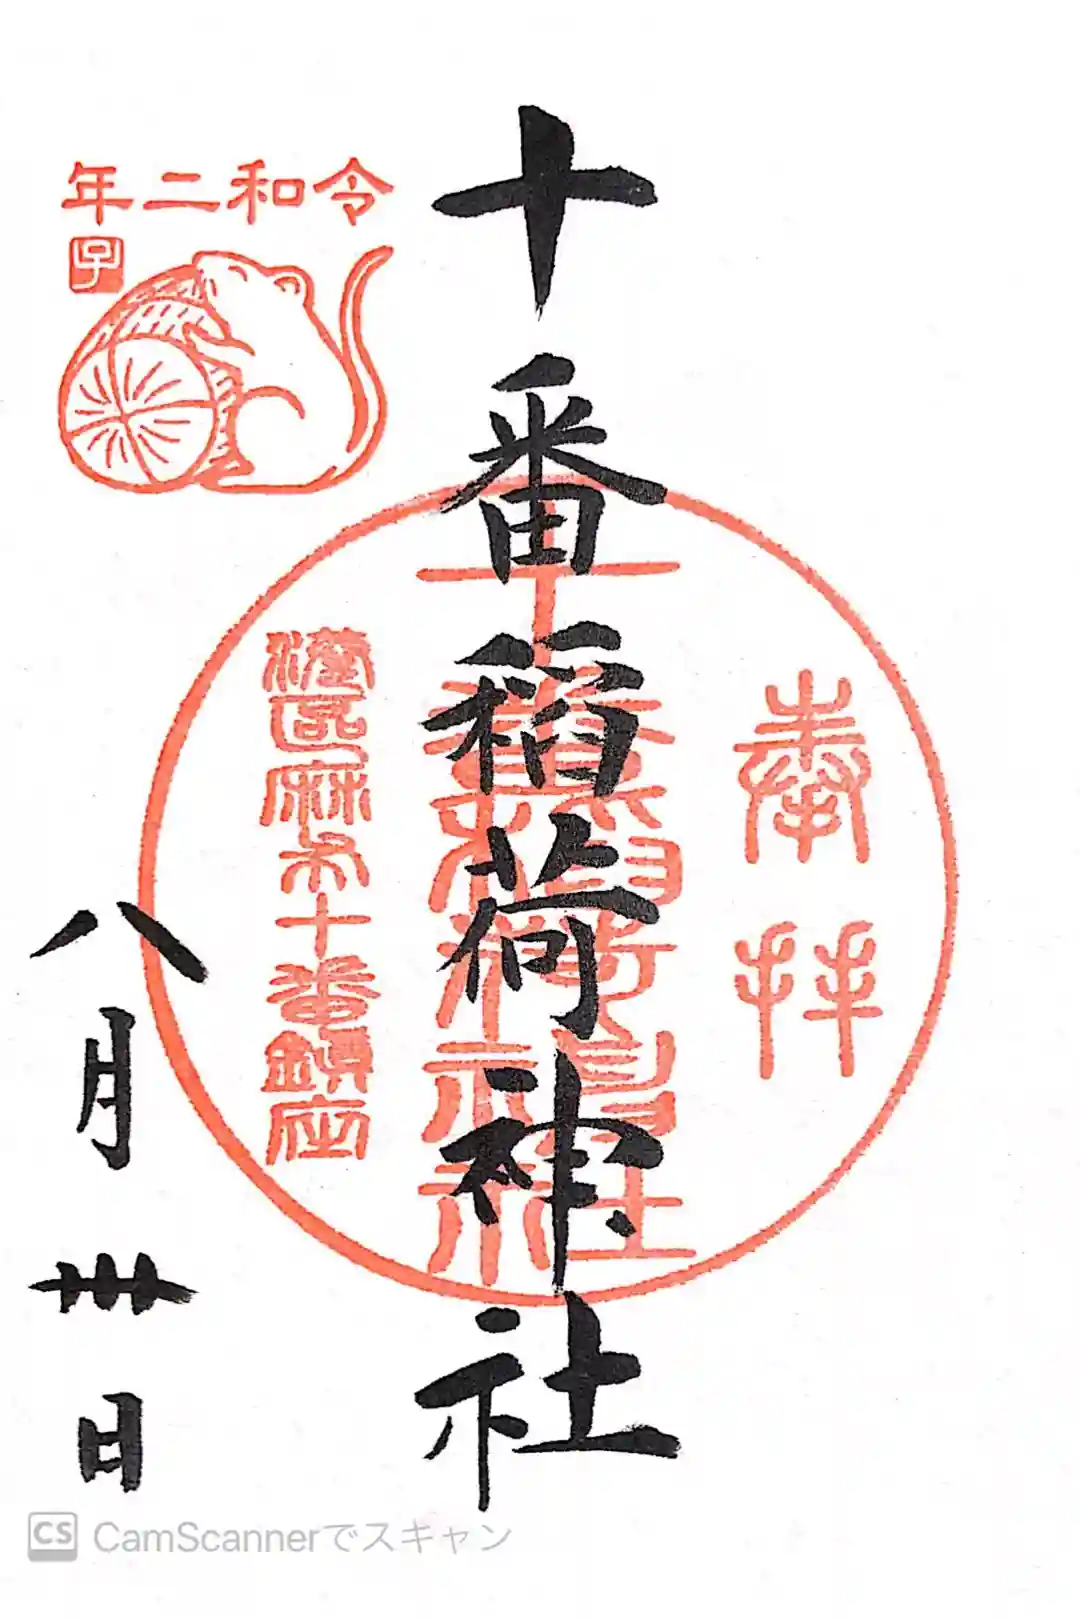 奉拝
十番稲荷神社
港区麻布十番鎮座
令和二年
子
八月卅日
CS CamScannerでスキャン